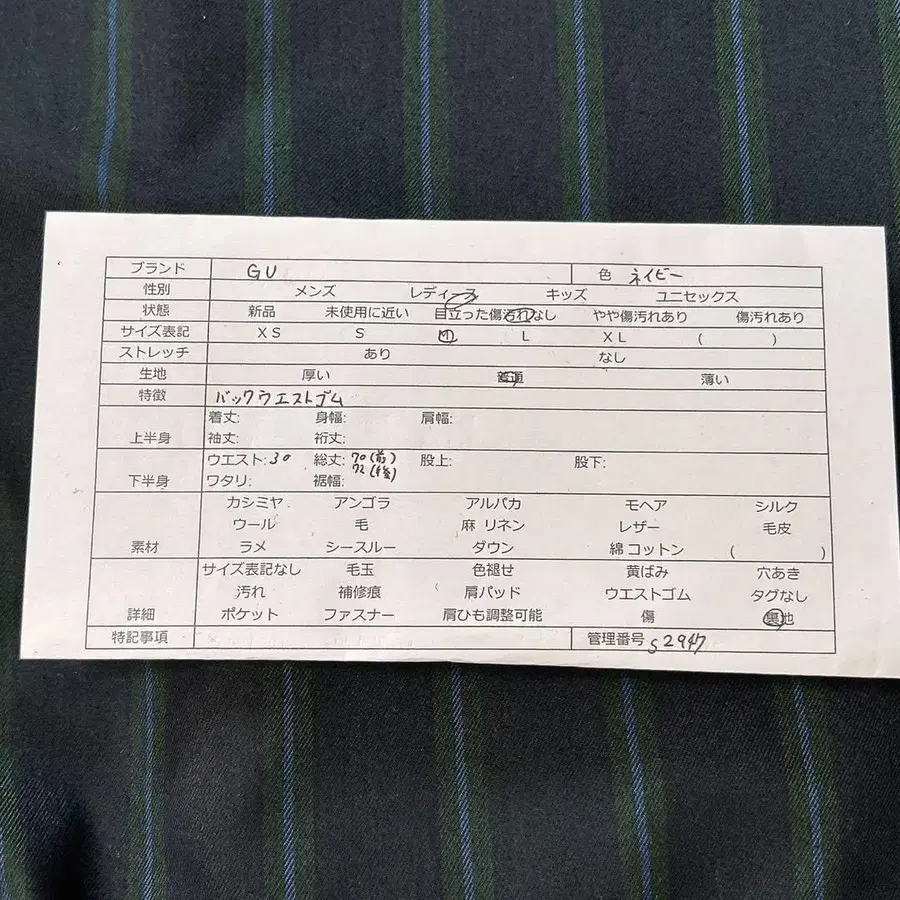 ブランド GU 色 ネイビー
性別 メンズ レディース キッズ ユニセックス
状態 新品 未使用に近い 目立った傷汚れなし やや傷汚れあり 傷汚れあり
サイズ表記 XS S M L XL ( )
ストレッチ あり なし
生地 厚い 普通 薄い
特徴 バックウエストゴム
着丈: 身幅: 肩幅:
上半身 袖丈: 裄丈:
ウエスト:30 総丈: 70(前) 72(後) 股上: 股下:
下半身 ワタリ: 裾幅:
カシミヤ アンゴラ アルパカ モヘア シルク
ウール 毛 麻 リネン レザー 毛皮
素材 ラメ シースルー ダウン 綿 コットン ( )
サイズ表記なし 毛玉 色褪せ 黄ばみ 穴あき
汚れ 補修痕 肩パッド ウエストゴム タグなし
詳細 ポケット ファスナー 肩ひも調整可能 傷 裏地
特記事項 管理番号 S2947